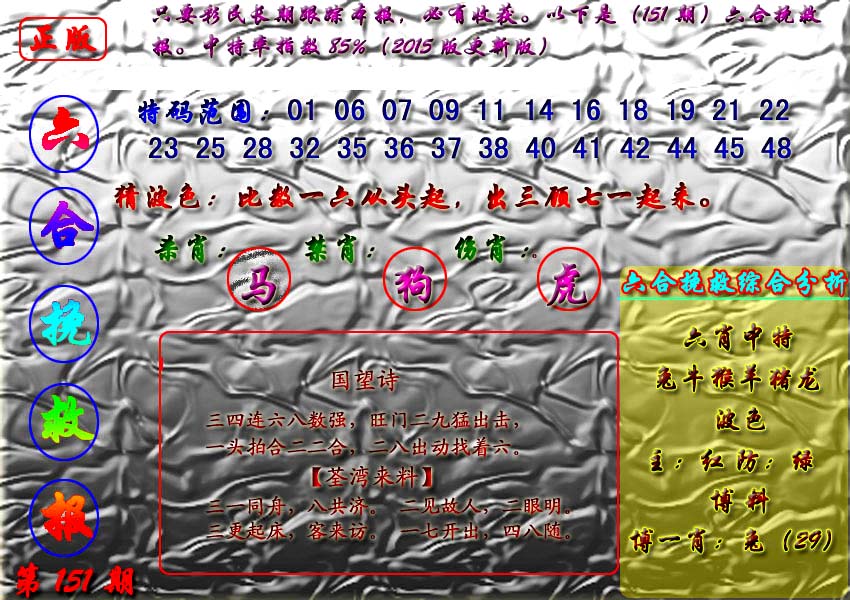 正版
只要彩民长期跟踪本报，必有收获。以下是（151期）六合挽救
报。中特率指数85%（2015版更新版）
六合挽救报
第151期
特码范围：01 06 07 09 11 14 16 18 19 21 22
23 25 28 32 35 36 37 38 40 41 42 44 45 48
猜波色：比数一六从头起，出三顾七一起来。
杀肖：马 禁肖：狗 伤肖：虎
国望诗
三四连六八数强，旺门二九猛出击，
一头拍合二二合，二八出动找着六。
【荃湾来料】
三一同舟，八共济。 二见故人，二眼明。
三更起床，客来访。 一七开出，四八随。
六合挽救综合分析
六肖中特
兔牛猴羊猪龙
波色
主：红防：绿
博料
博一肖：兔（29）